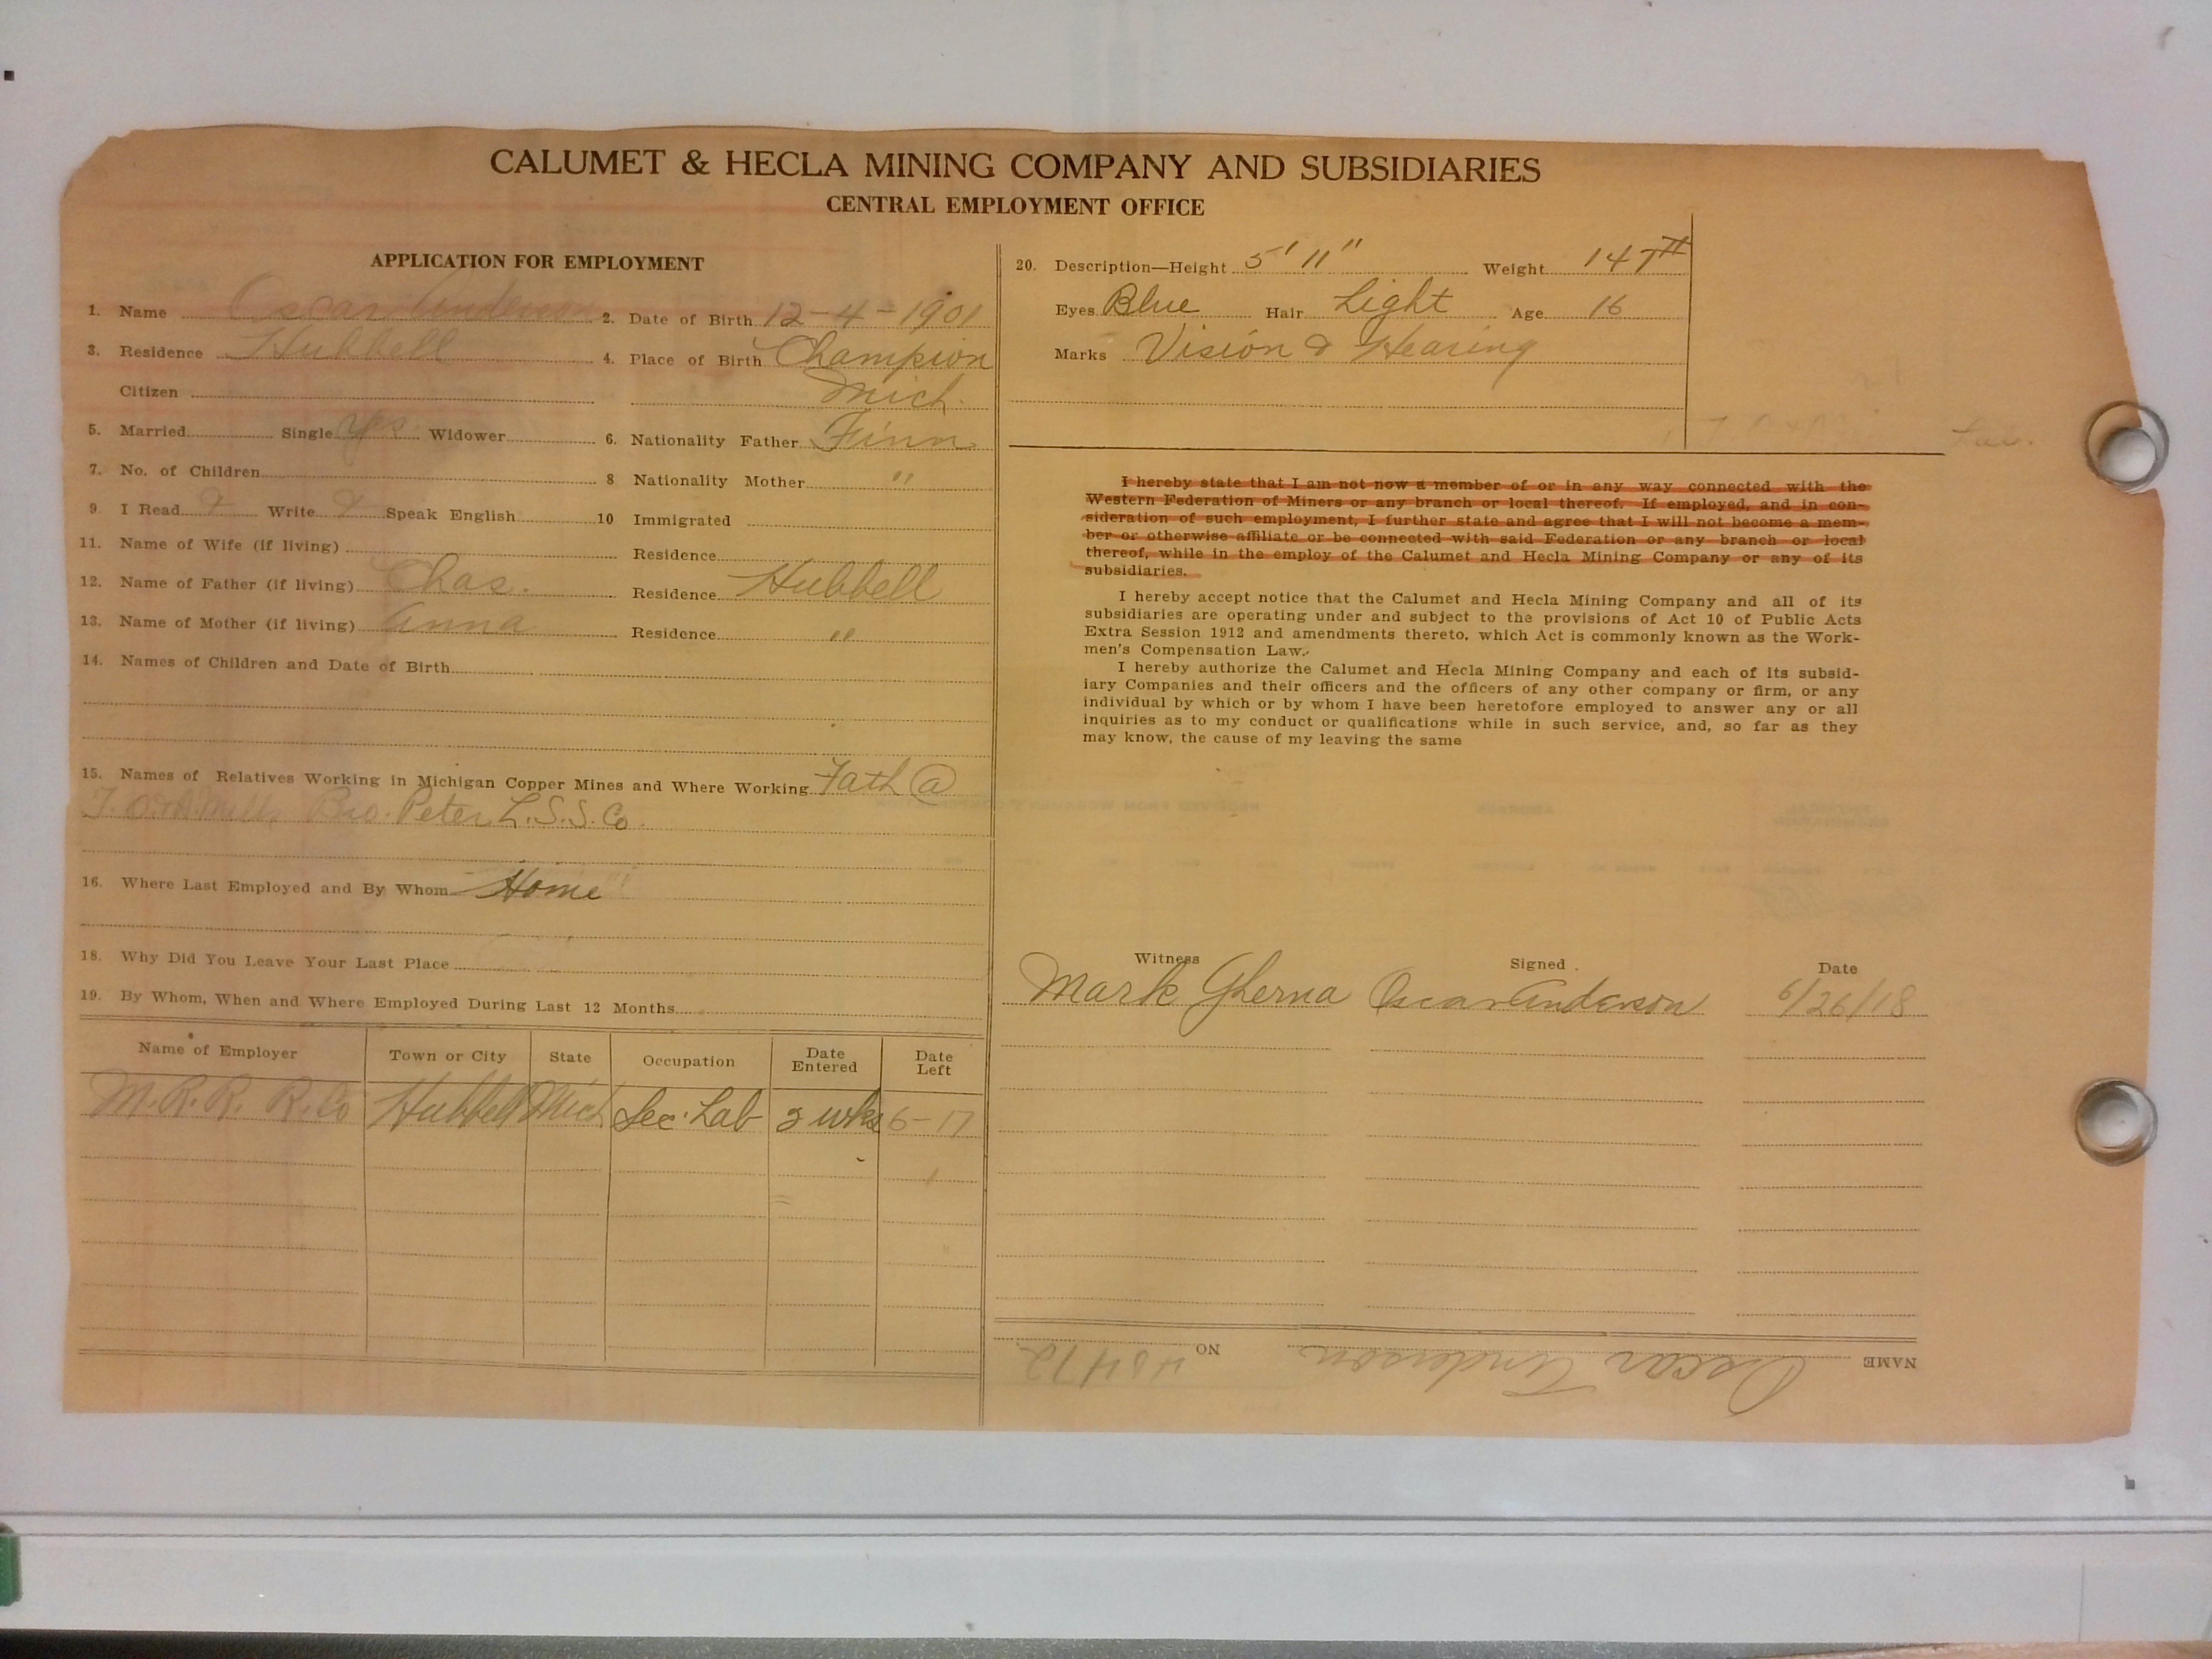 CALUMET & HECLA MINING COMPANY AND SUBSIDIARIES
CENTRAL EMPLOYMENT OFFICE
APPLICATION FOR EMPLOYMENT
1. Name Oscar Anderson 2. Date of Birth 12-4-1901
3. Residence Hubbell 4. Place of Birth Champion
Citizen Mich.
5. Married Single Yes Widower 6. Nationality Father Finn
7. No. of Children 8 Nationality Mother "
9. I Read Write Speak English 10 Immigrated
11. Name of Wife (if living) Residence
12. Name of Father (if living) Chas. Residence Hubbell
13. Name of Mother (if living) Anna Residence "
14. Names of Children and Date of Birth
15. Names of Relatives Working in Michigan Copper Mines and Where Working Fath @
Mill, Bro. Peter L.S.S.Co.
16. Where Last Employed and By Whom Home
18. Why Did You Leave Your Last Place
19. By Whom, When and Where Employed During Last 12 Months
Name of Employer Town or City State Occupation Date Entered Date Left
M.R.R. R.Co Hubbell Mich Sec. Lab 2 wks 6-17
20. Description—Height 5' 11" Weight 147#
Eyes Blue Hair Light Age 16
Marks Vision & Hearing
I hereby state that I am not now a member of or in any way connected with the
Western Federation of Miners or any branch or local thereof. If employed, and in con-
sideration of such employment, I further state and agree that I will not become a mem-
ber or otherwise affiliate or be connected with said Federation or any branch or local
thereof, while in the employ of the Calumet and Hecla Mining Company or any of its
subsidiaries.
I hereby accept notice that the Calumet and Hecla Mining Company and all of its
subsidiaries are operating under and subject to the provisions of Act 10 of Public Acts
Extra Session 1912 and amendments thereto, which Act is commonly known as the Work-
men's Compensation Law.
I hereby authorize the Calumet and Hecla Mining Company and each of its subsid-
iary Companies and their officers and the officers of any other company or firm, or any
individual by which or by whom I have been heretofore employed to answer any or all
inquiries as to my conduct or qualifications while in such service, and, so far as they
may know, the cause of my leaving the same
Witness Signed Date
Mark Gherna Oscar Anderson 6/26/18
NAME Oscar Anderson NO